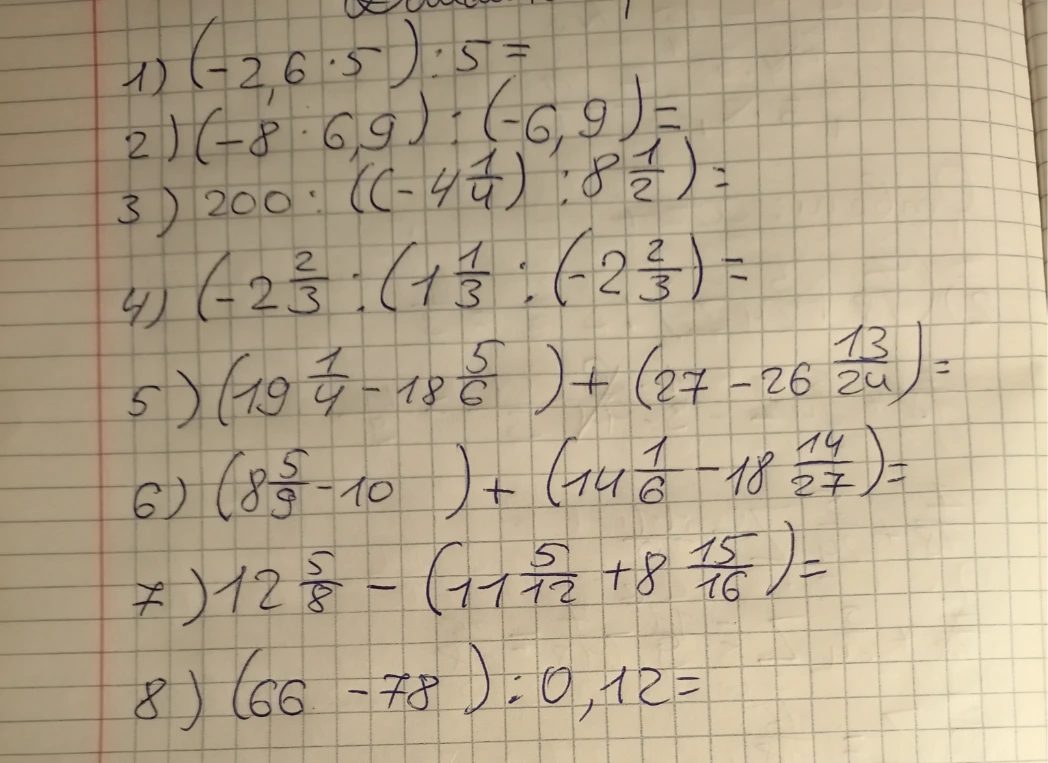 1) (-2,6 · 5) : 5 =
2) (-8 · 6,9) : (-6,9) =
3) 200 : ((-4 1/4) : 8 1/2) =
4) (-2 2/3 : (1 1/3 : (-2 2/3) =
5) (19 1/4 - 18 5/6) + (27 - 26 13/24) =
6) (8 5/9 - 10) + (14 1/6 - 18 14/27) =
7) 12 5/8 - (11 5/12 + 8 15/16) =
8) (66 - 78) : 0,12 =